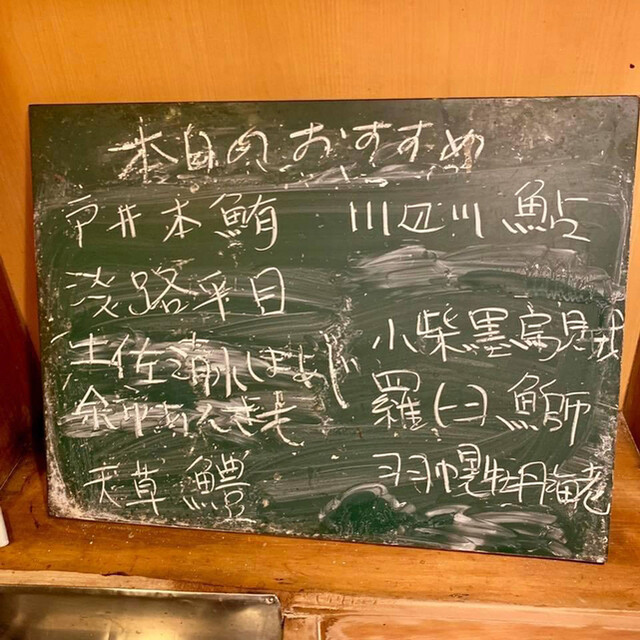 本日のおすすめ
戸井本鮪
淡路平目
土佐清水はまあじ
余市あんきも
天草鱧
川辺川 鮎
小柴墨烏賊
羅臼鰤
羽幌牡丹海老